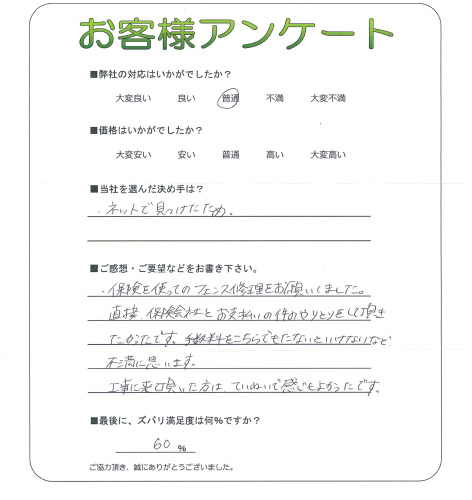 お客様アンケート
■弊社の対応はいかがでしたか?
大変良い 良い 普通 不満 大変不満
■価格はいかがでしたか?
大変安い 安い 普通 高い 大変高い
■当社を選んだ決め手は?
・ネットで見つけたため。
■ご感想・ご要望などをお書き下さい。
・保険を使ってのフェンス修理をお願いしました。
直接、保険会社とお支払いの件のやりとりをして頂き
たかったです。手数料もこちらでもたないといけないなど
不満に思います。
工事に来て頂いた方は、ていねいで感じもよかったです。
■最後に、ズバリ満足度は何%ですか?
60 %
ご協力頂き、誠にありがとうございました。